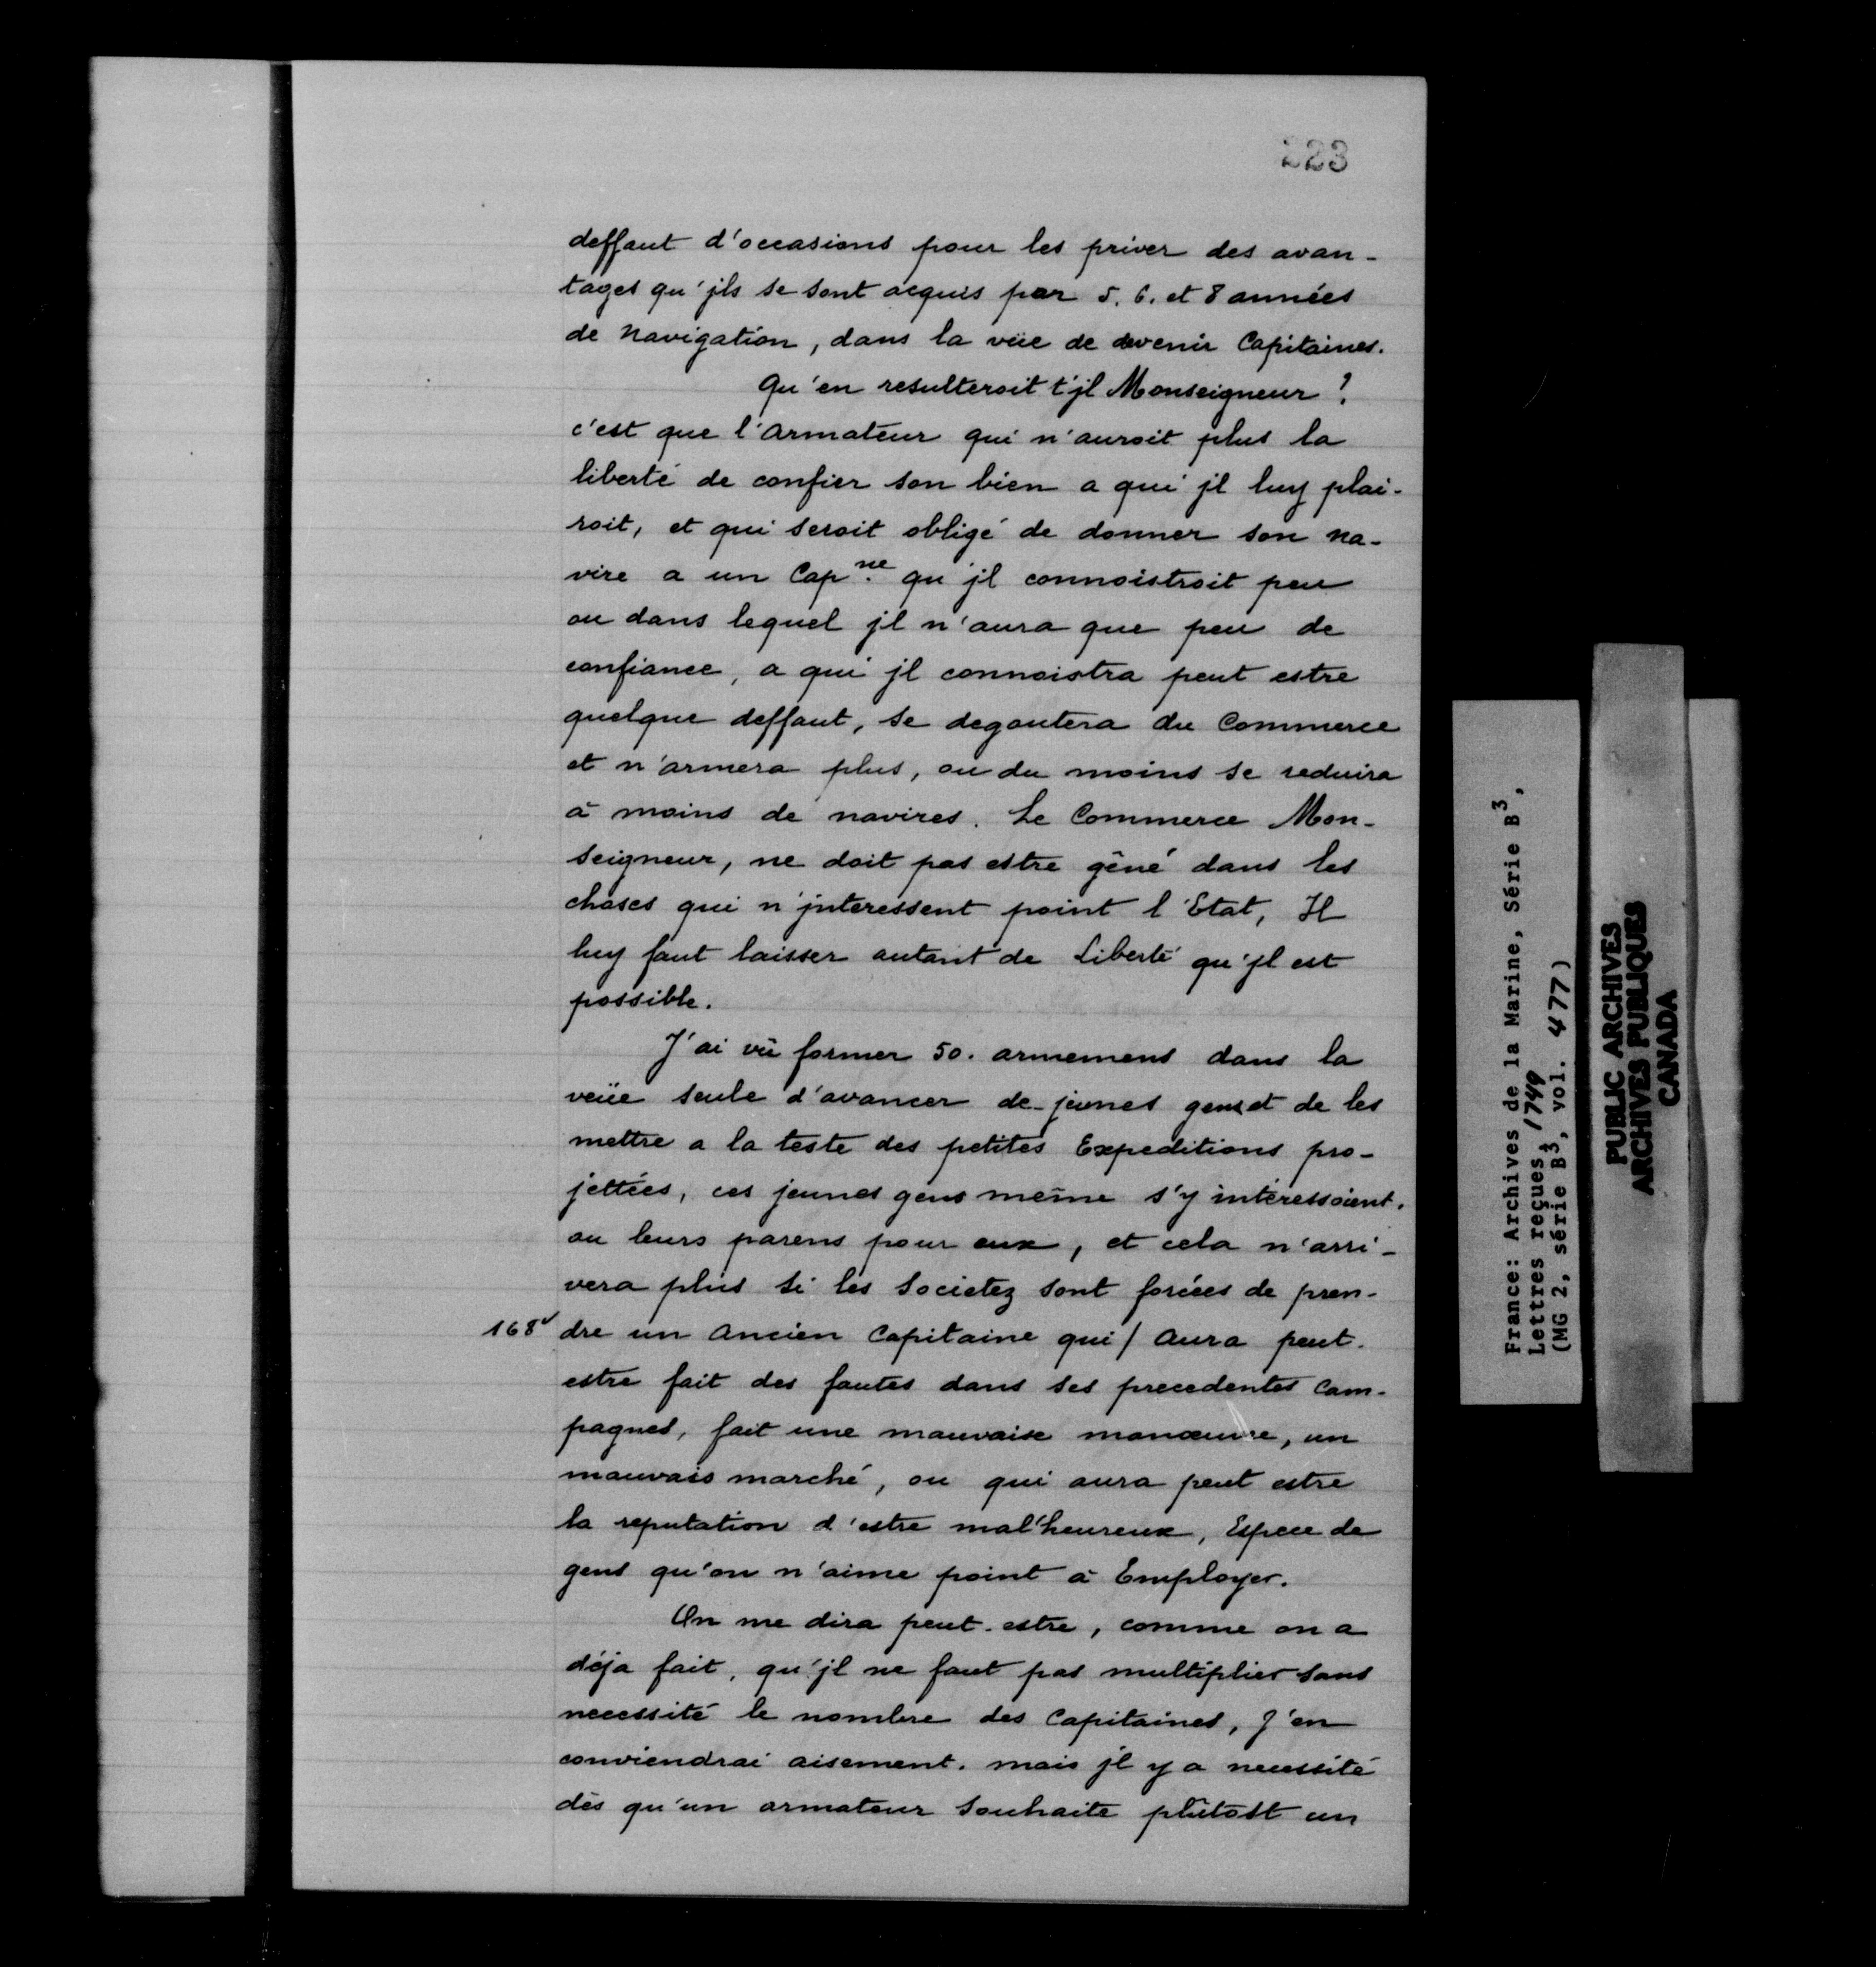 223
deffaut d'occasions pour les priver des avan-
tages qu'jls se sont acquis par 5. 6. et 8 années
de navigation, dans la vüe de devenir Capitaines.
Qu'en resulteroit t'jl Monseigneur ?
c'est que l'armateur qui n'auroit plus la
liberté de confier son bien a qui jl luy plai-
roit, et qui seroit obligé de donner son na-
vire a un Capne. qu'jl connoistroit peu
ou dans lequel jl n'aura que peu de
confiance, a qui jl connoistra peut estre
quelque deffaut, se degoutera du Commerce
et n'armera plus, ou du moins se reduira
à moins de navires. Le Commerce Mon-
seigneur, ne doit pas estre gêné dans les
choses qui n'jnteressent point l'Etat, Il
luy faut laisser autant de Liberté qu'jl est
possible.
J'ai vû former 50. armemens dans la
veüe seule d'avancer de jeunes gens et de les
mettre a la teste des petites Expeditions pro-
jettées, ces jeunes gens même s'y intéressoient.
ou leurs parens pour eux, et cela n'arri-
vera plus si les Societez sont forcées de pren-
168v dre un ancien Capitaine qui / aura peut-
estre fait des fautes dans ses precedentes Cam-
pagnes, fait une mauvaise manœuvre, un
mauvais marché, ou qui aura peut estre
la reputation d'estre mal'heureux, Espece de
gens qu'on n'aime point à Employer.
On me dira peut-estre, comme on a
déja fait, qu'jl ne faut pas multiplier sans
necessité le nombre des Capitaines, J'en
conviendrai aisement. mais jl y a necessité
dès qu'un armateur souhaite plûtost un
France: Archives de la Marine, Série B3,
Lettres reçues, 1749
(MG 2, série B3, vol. 477)
PUBLIC ARCHIVES
ARCHIVES PUBLIQUES
CANADA